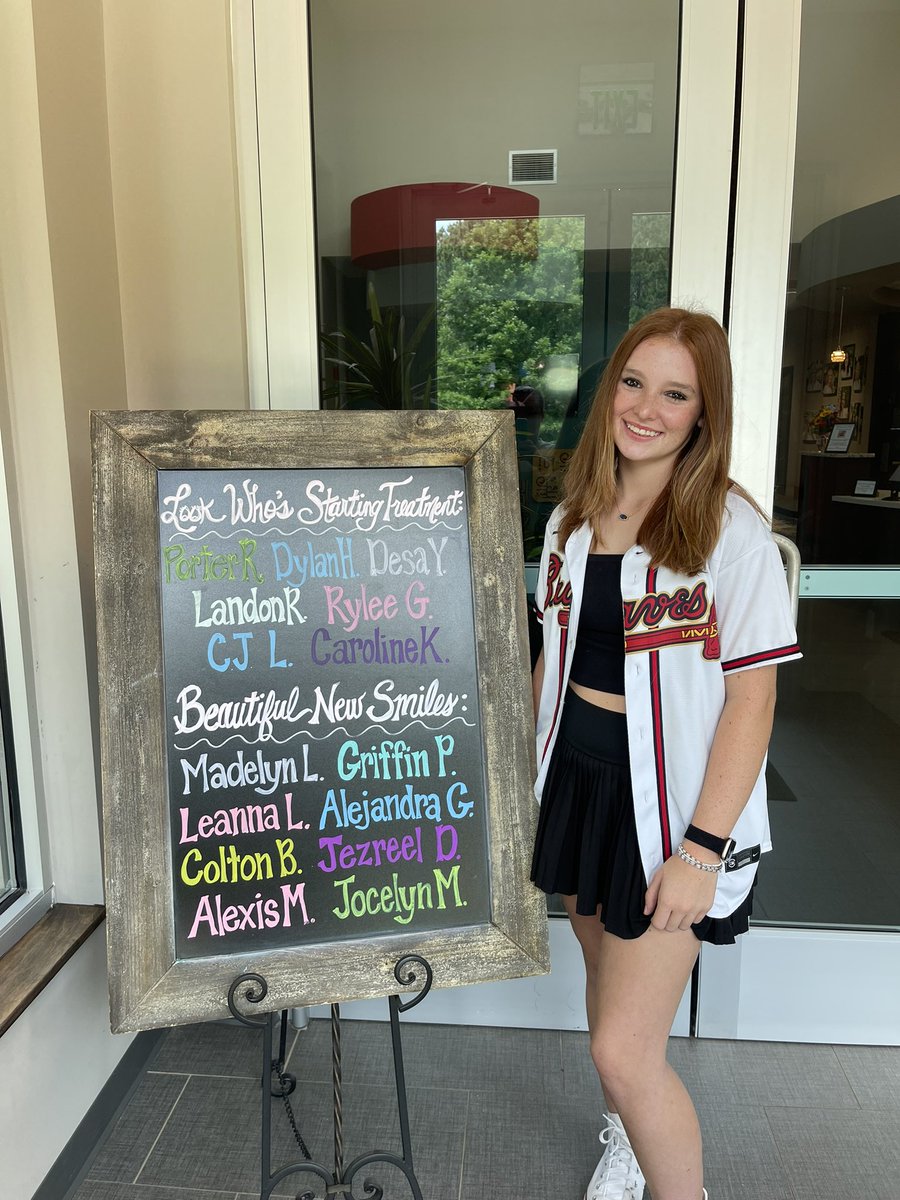 EXIT
Look Who's Starting Treatment:
Porter R. Dylan H. Desa Y.
Landon R. Rylee G.
CJ. L. Caroline K.
Beautiful New Smiles:
Madelyn L. Griffin P.
Leanna L. Alejandra G.
Colton B. Jezreel D.
Alexis M. Jocelyn M.
Braves